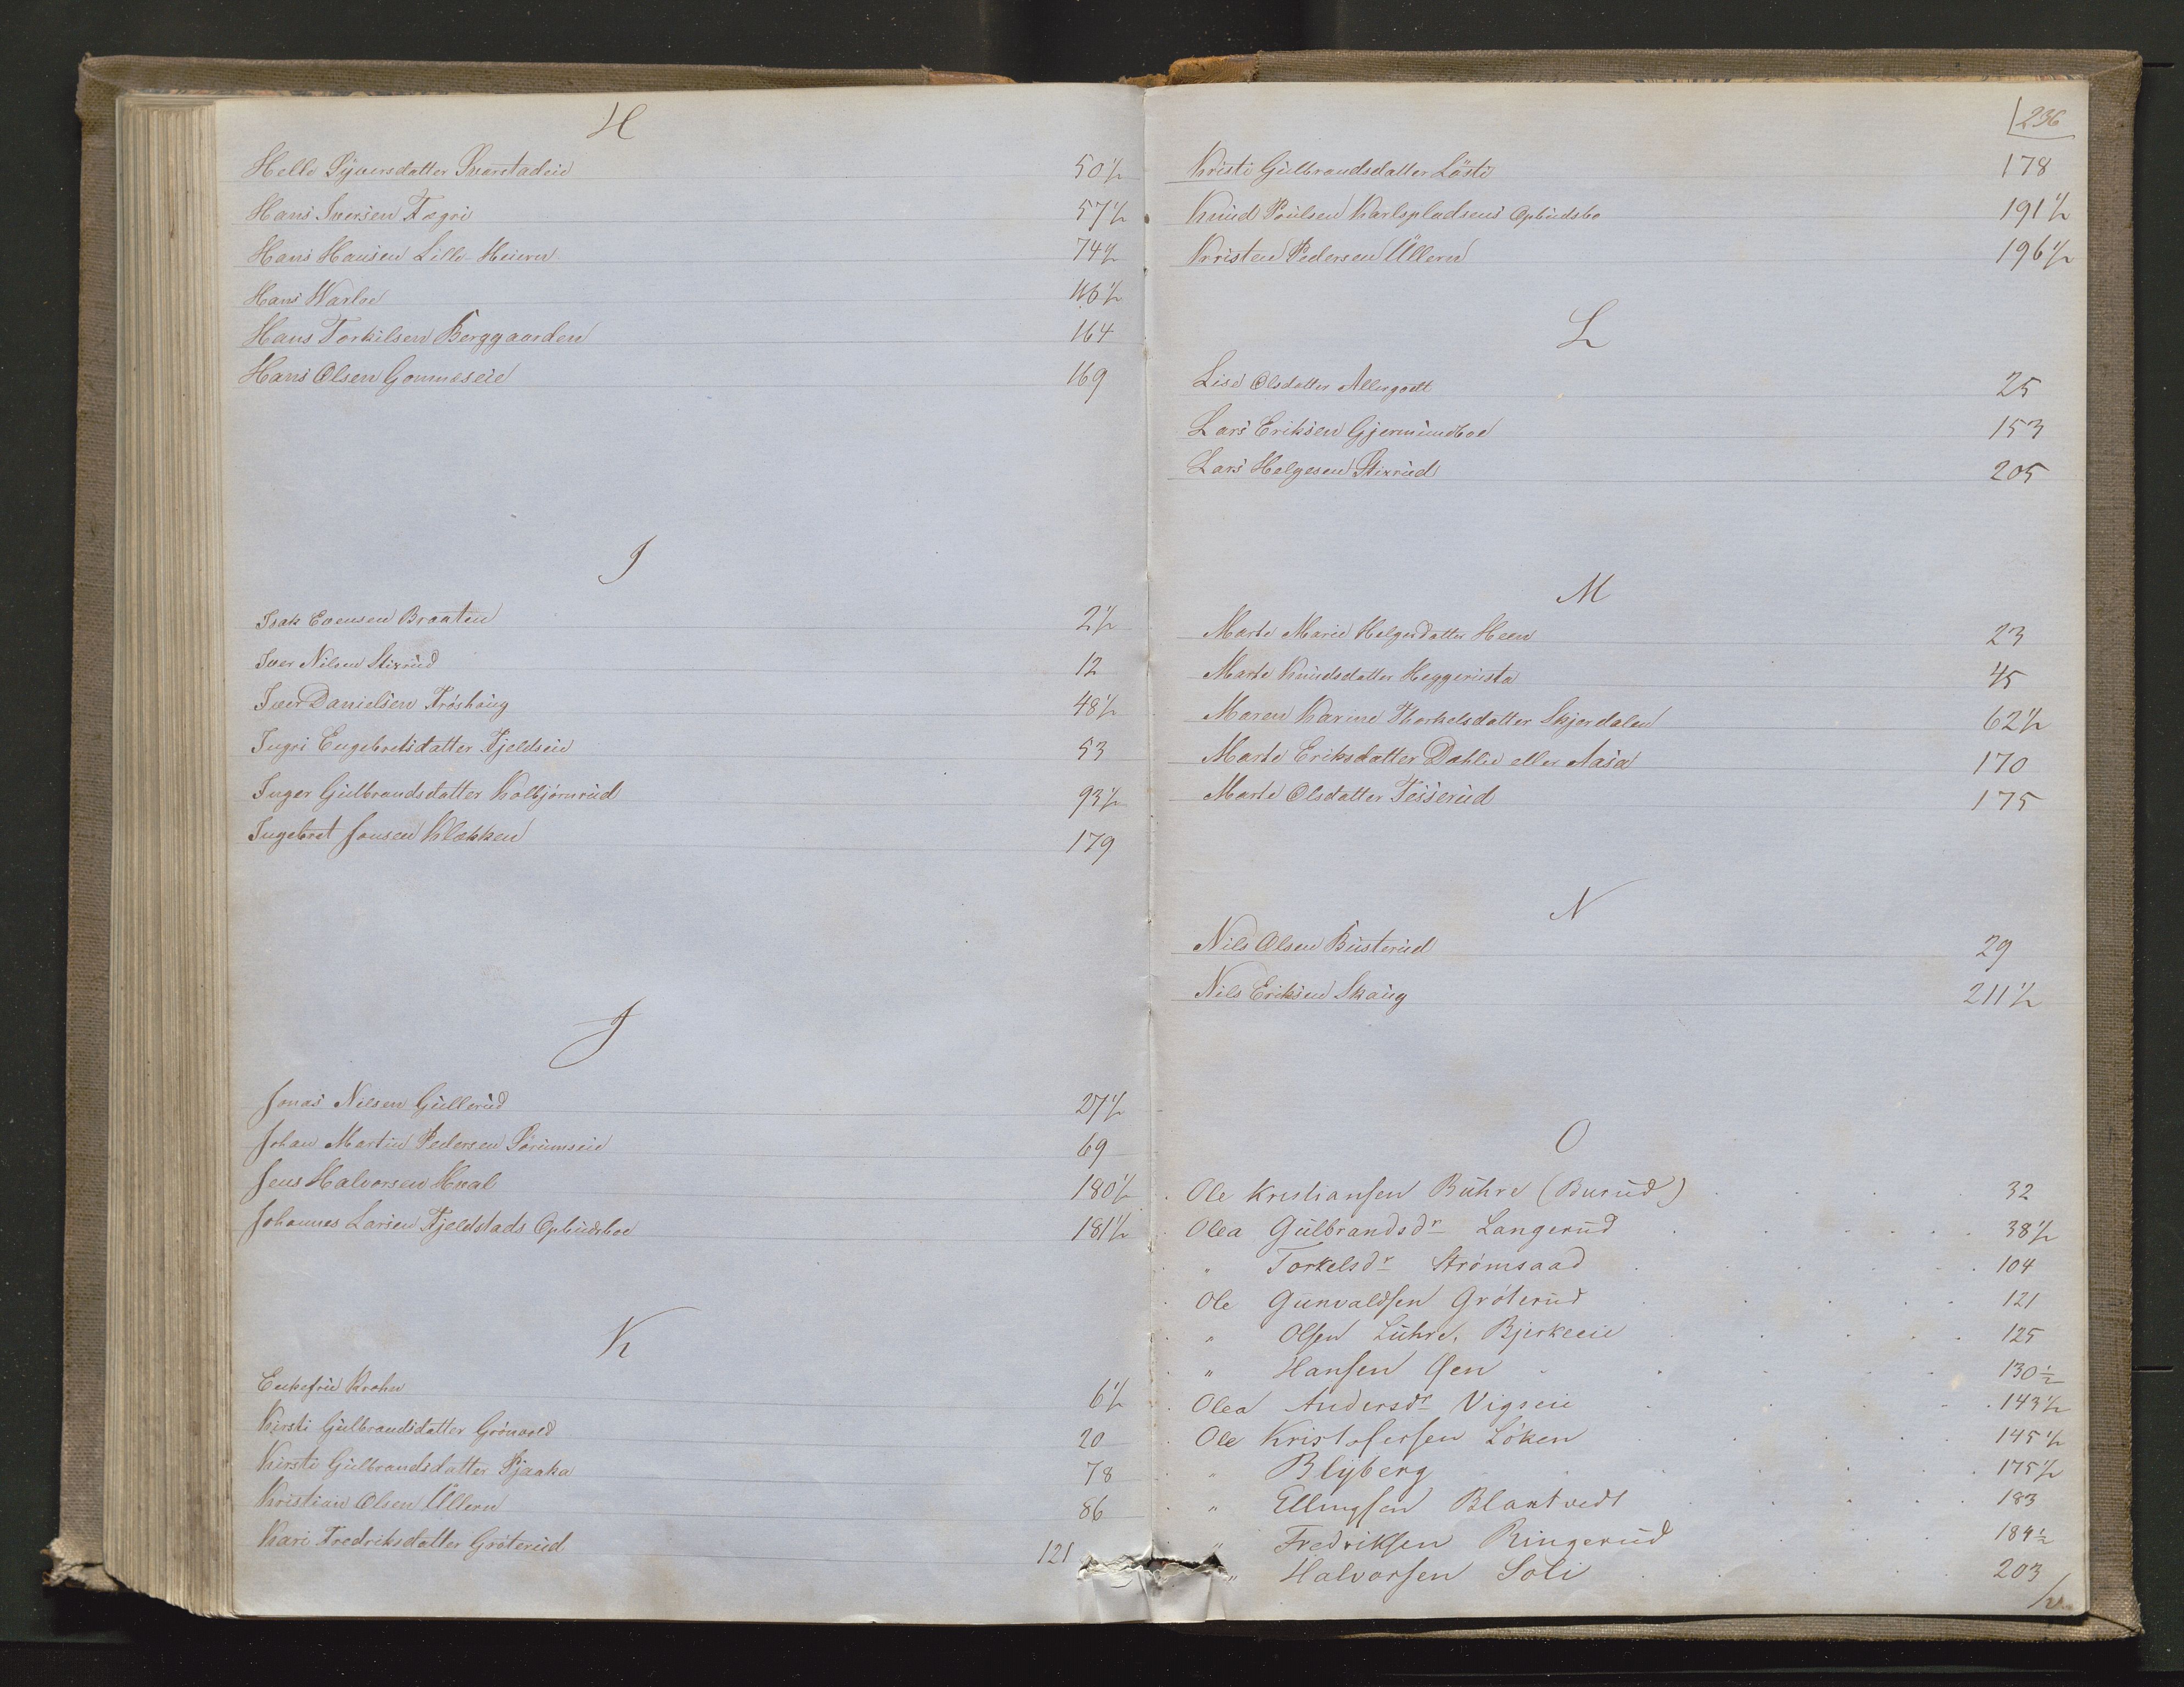 H
Helle Syversdatter 50 1/2
Hans Iversen Fægri 57 1/2
Hans Hansen Lille-Heieren 74 1/2
Hans Warloe
Hans Torkilsen Berggaarden 164
Hans Olsen Gommeseie 169
I
Isak Evensen Braaten 2 1/2
Iver Nilsen Stixrud 12
Iver Danielsen Frøshaug 48 1/2
Ingri Engebretsdatter Fjeldseie 53
Inger Gulbrandsdatter Kolbjørnrud 93 1/2
Ingebret Jonsen Klækken 179
J
Jonas Nilsen Gullerud 27 1/2
Johan Martin Pedersen Sørumseie 69
Jens Halvorsen Hval 180 1/2
Johannes Larsen Fjeldstads Opbudsboe 181 1/2
K
Enkefru Krohn 6 1/2
Kirsti Gulbrandsdatter Grønvold 20
Kirsti Gulbrandsdatter Sjaaka 78
Kristian Olsen Ullern 86
Kari Fredriksdatter Grøterud 121
236
Kristi Gulbrandsdatter Løsti 178
Knud Poulsen Karlspladsens Opbudsbo 191 1/2
Kristen Pedersen Ullern 196 1/2
L
Lise Olsdatter Allergodt 25
Lars Eriksen Gjermundboe 153
Lars Helgesen Stixrud 205
M
Marte Marie Helgesdatter Heen 23
Marte Knudsdatter Heggerusta 45
Maren Karine Thorkelsdatter Skjerdalen 62 1/2
Marte Eriksdatter Dahlie eller Aasa 170
Marte Olsdatter Tesserud 175
N
Nils Olsen Busterud 29
Nils Eriksen Skaug 211 1/2
O
Ole Kristiansen Buhre (Burud) 32
Olea Gulbrandsdr Langerud 38 1/2
" Torkelsdr Strømsaad 104
Ole Gunvaldsen Grøterud 121
" Olsen Luhre, Bjerkeeie 125
" Hansen Gen 130 1/2
Olea Andersdr Vigseie 143 1/2
Ole Kristofersen Løken 145 1/2
" Blyberg 175 1/2
" Ellingsen Blaktvedt 183
" Fredriksen Ringerud 184 1/2
" Halvorsen Soli 203